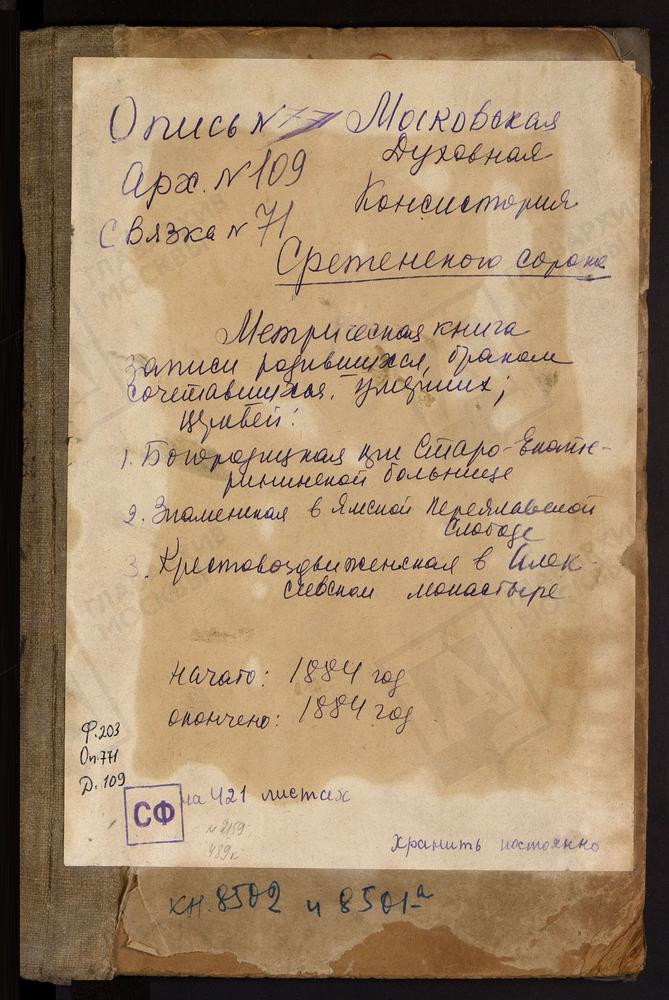 Опись № 77 Московская
Духовная
Арх. № 109
Консистория
Связка № 71
Сретенского сорока
Метрическая книга
записи родившихся, браком
сочетавшихся, умерших;
церквей:
1. Богородицкая при Старо-Екате-
рининской больнице
2. Знаменская в Ямской Переяславской
Слободе
3. Крестовоздвиженская в Алек-
сеевском монастыре
начато: 1884 год
окончено: 1884 год
Ф. 203
Оп. 771
Д. 109
СФ
на 421 листах
хранить постоянно
кн. 8502 и 8501-а